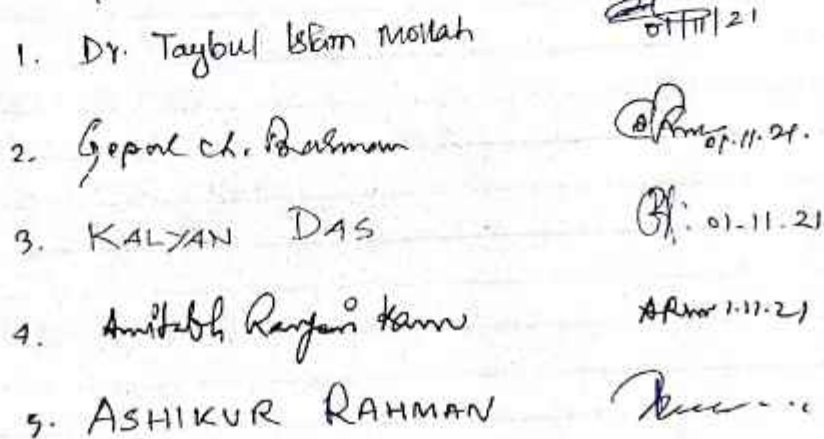 1. Dr. Taybul Islam Mollah 01/11/21
2. Gopal ch. Barman 01.11.21.
3. KALYAN DAS 01-11-21
4. Amitabh Ranjan 1.11.21
5. ASHIKUR RAHMAN